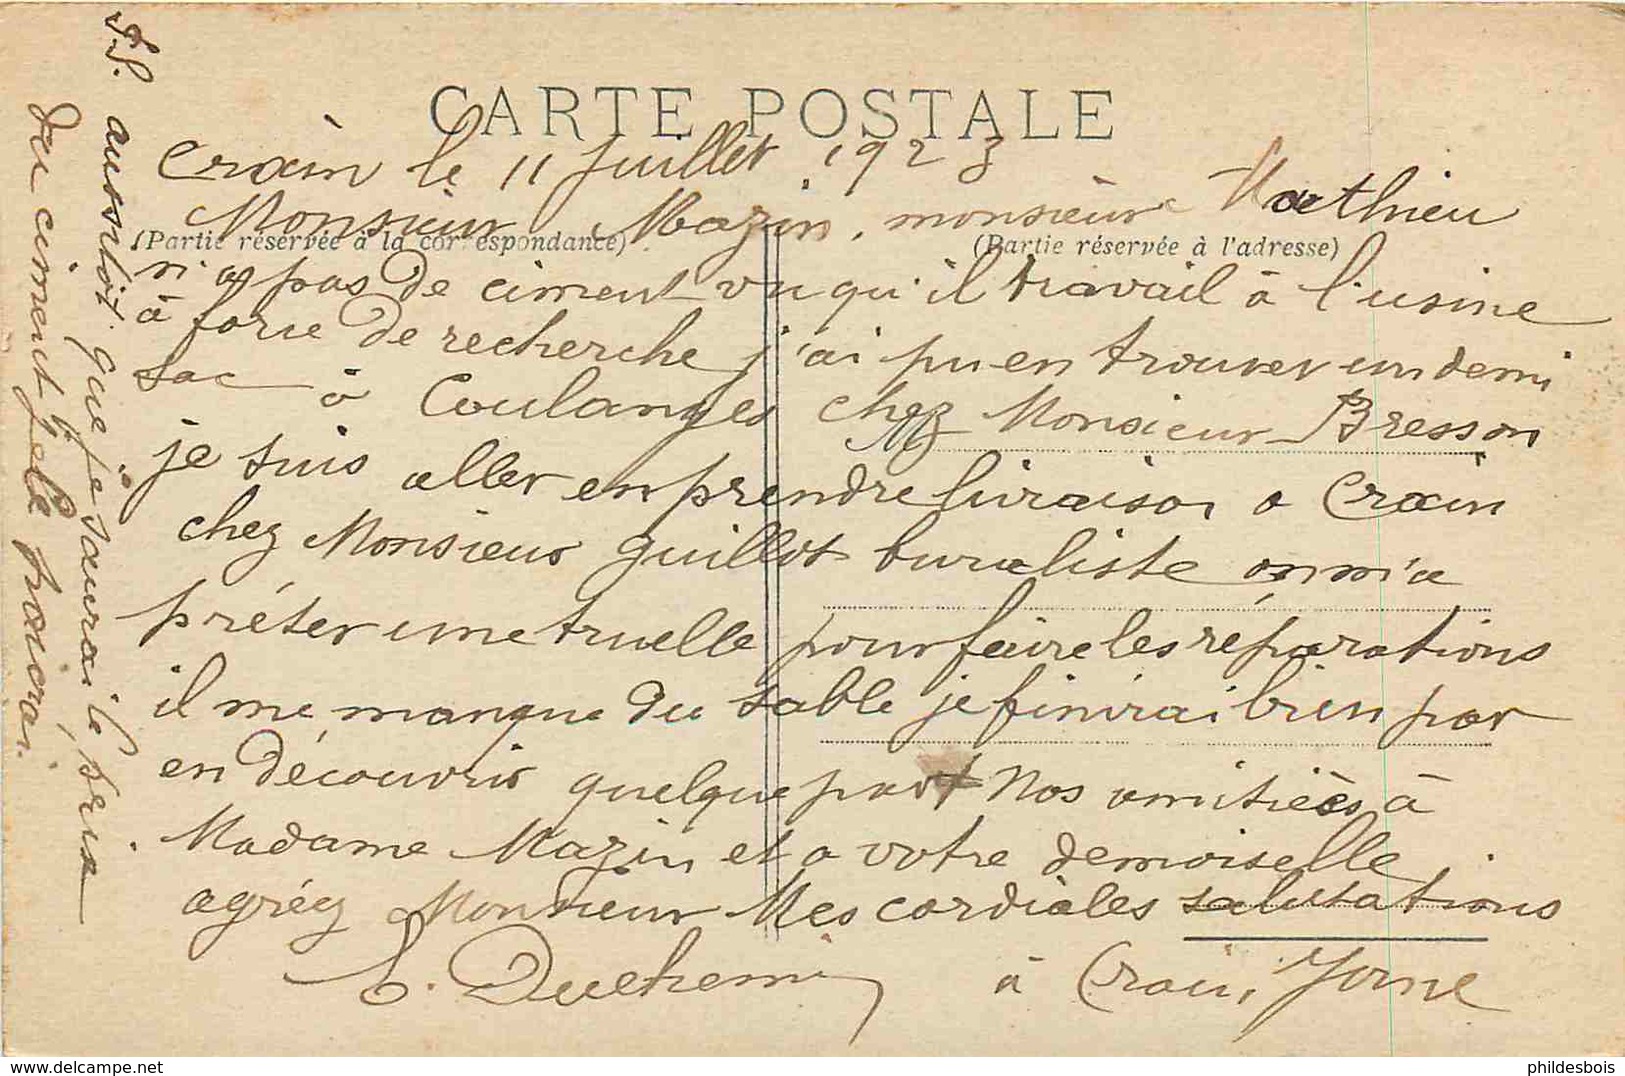 CARTE POSTALE
Crain le 11 Juillet 1923
Monsieur Mazin, monsieur Mathieu
(Partie réservée à la correspondance)
(Partie réservée à l'adresse)
n'a pas de ciment vu qu'il travail à l'usine
à force de recherche j'ai pu en trouver un demi
sac à Coulanges chez Monsieur Bresson
je suis aller en prendre livraison a Crain
chez Monsieur Guillot buraliste on m'a
prêter une truelle pour faire les réparations
il me manque du sable je finirai bien par
en découvrir quelque part Nos amitiées à
Madame Mazin et a votre demoiselle
agréez Monsieur Mes cordiales salutations
E. Duchemin à Crain, Yonne
P.S. aussitôt que je saurai le prix
du ciment je le
philedesbois